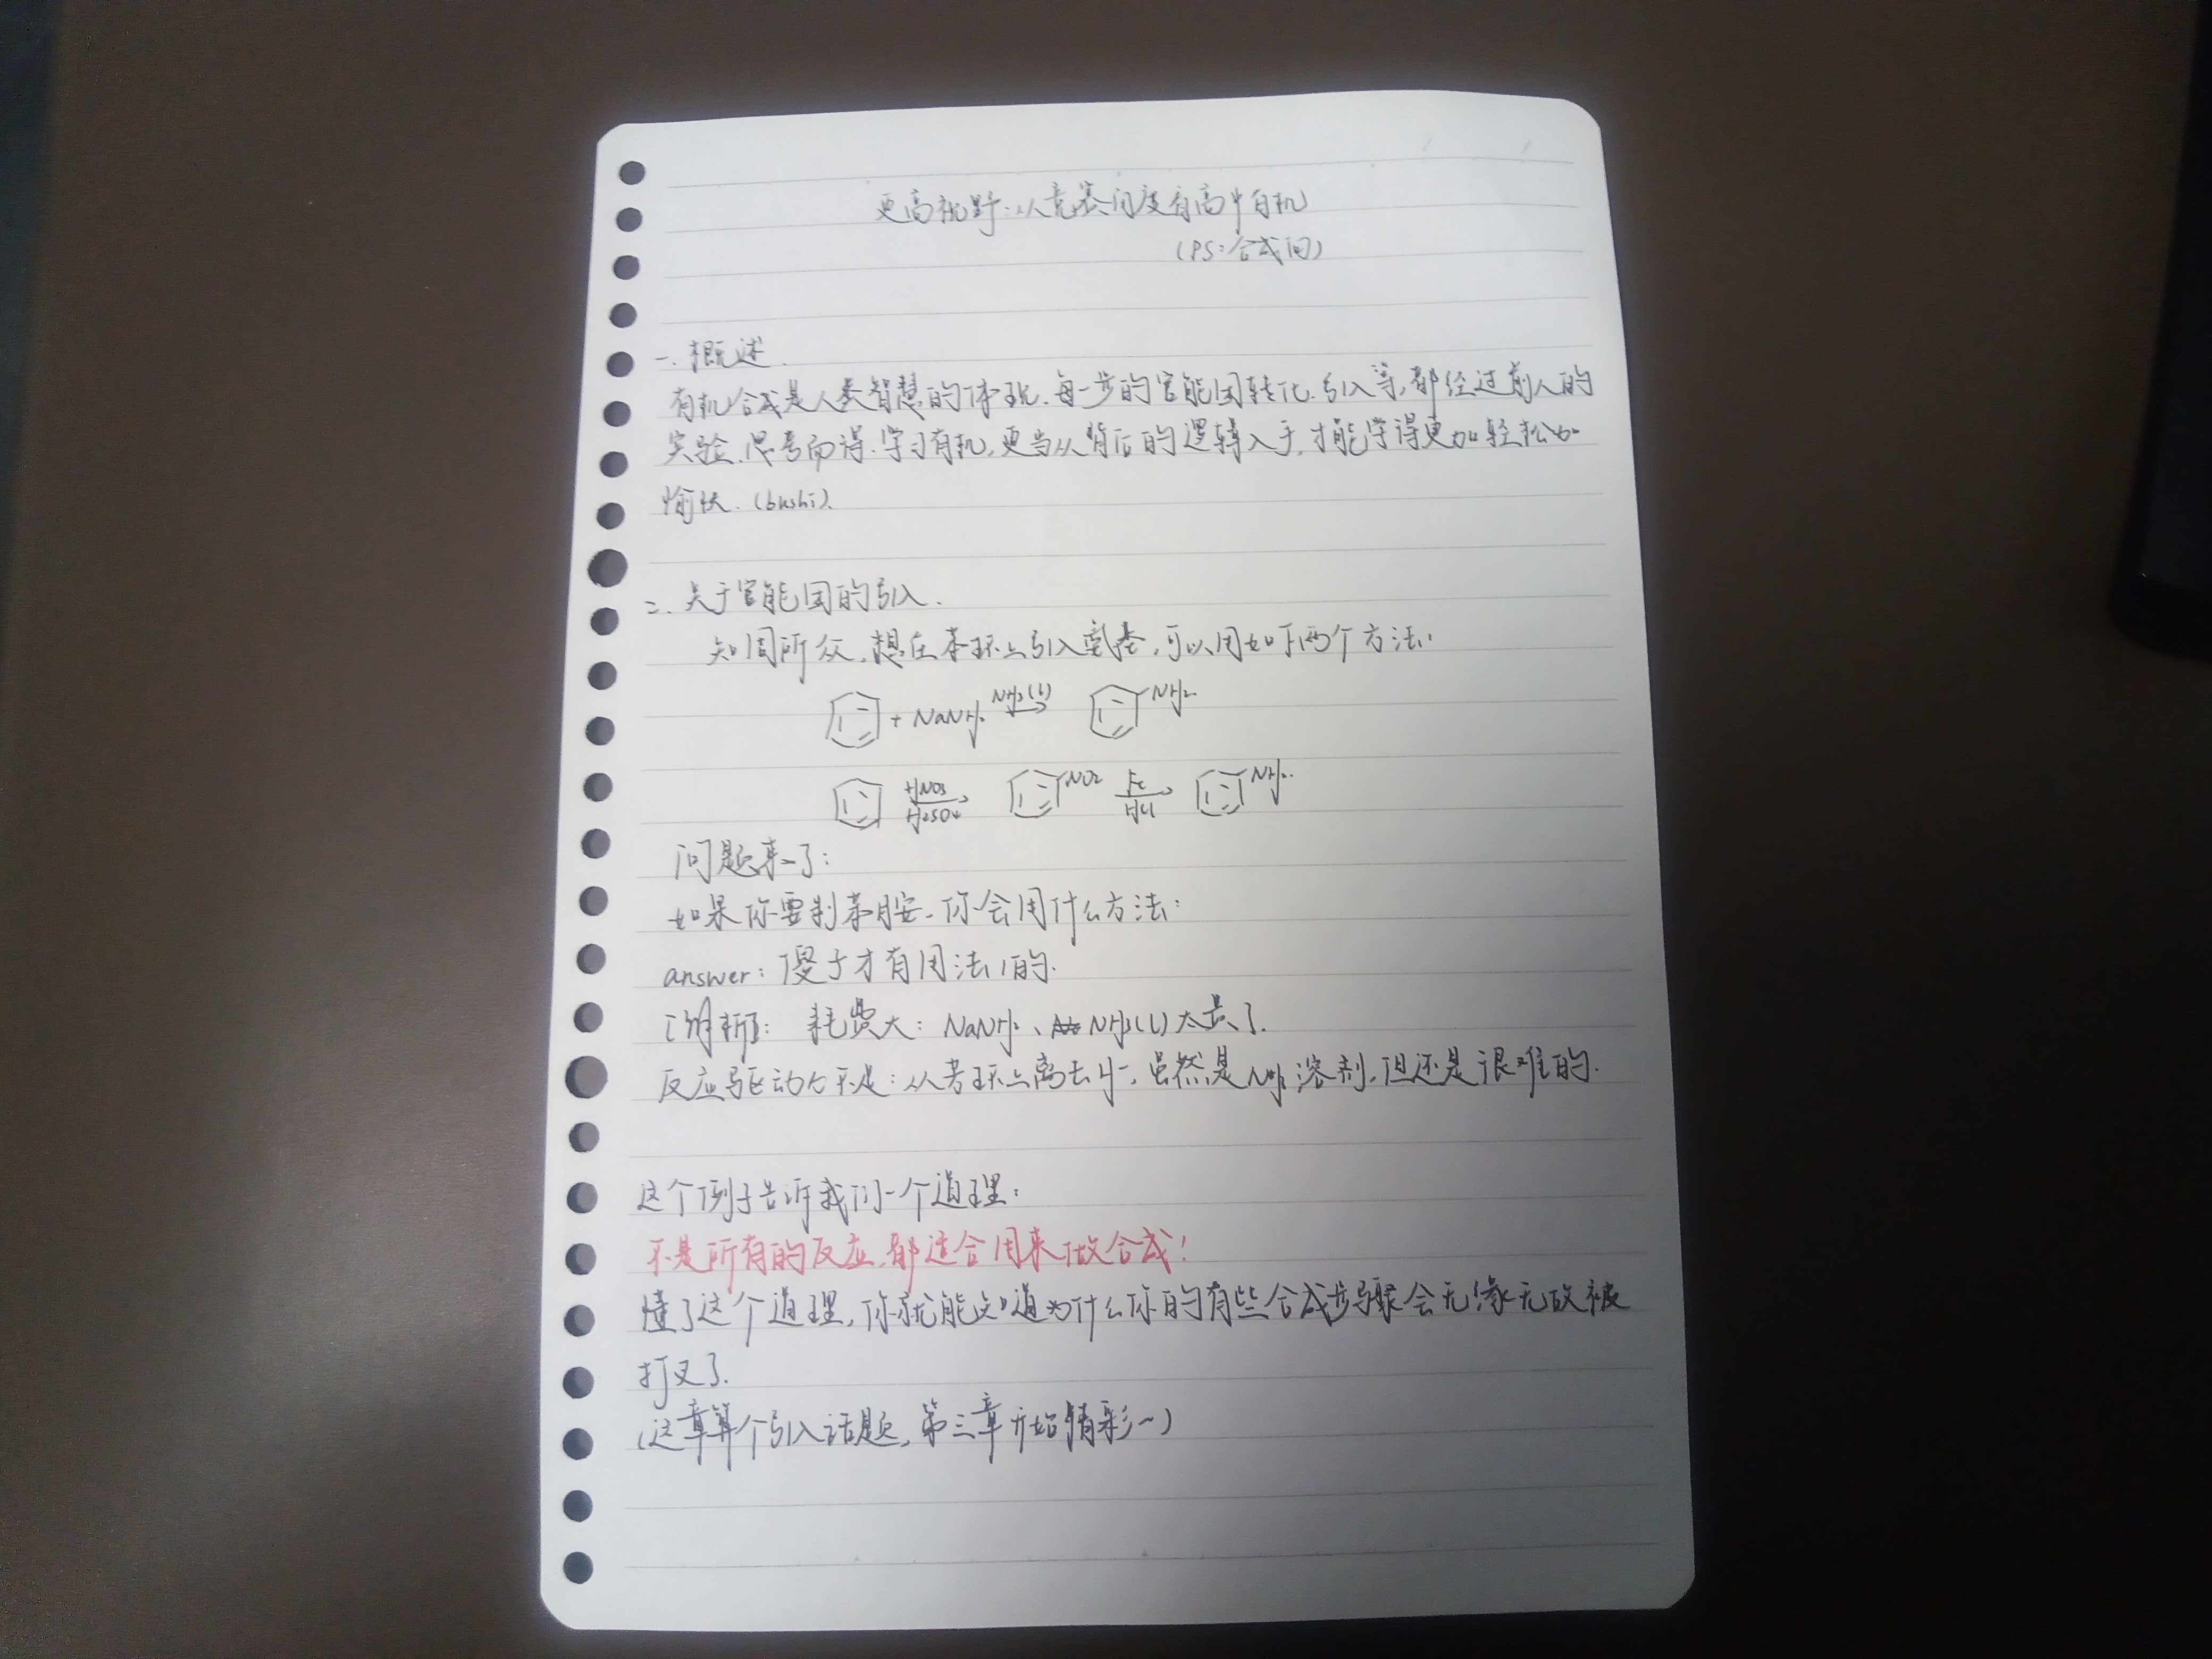 更高视野:从竞赛角度看高中有机
(PS:合成向)
一.概述.
有机合成是人类智慧的体现.每一步的官能团转化.引入等,都经过前人的
实验.思考而得.学习有机,更当从背后的逻辑入手,才能学得更加轻松加
愉快.(bushi).
二.关于官能团的引入.
知周所众,想在苯环上引入氨基,可以用如下两个方法:
+ NaNH2 NH3(l) NH2
HNO3 H2SO4 NO2 Fe HCl NH2.
问题来了:
如果你要制苯胺,你会用什么方法:
answer:傻子才有用法1的.
[解析]: 耗费大: NaNH2、NH3(l)太贵了.
反应驱动力不足:从苯环上离去H-,虽然是NH3溶剂,但还是很难的.
这个例子告诉我们一个道理:
不是所有的反应,都适合用来做合成!
懂了这个道理,你就能知道为什么你的有些合成步骤会无缘无故被
打叉了.
(这章算个引入话题,第三章开始精彩~)